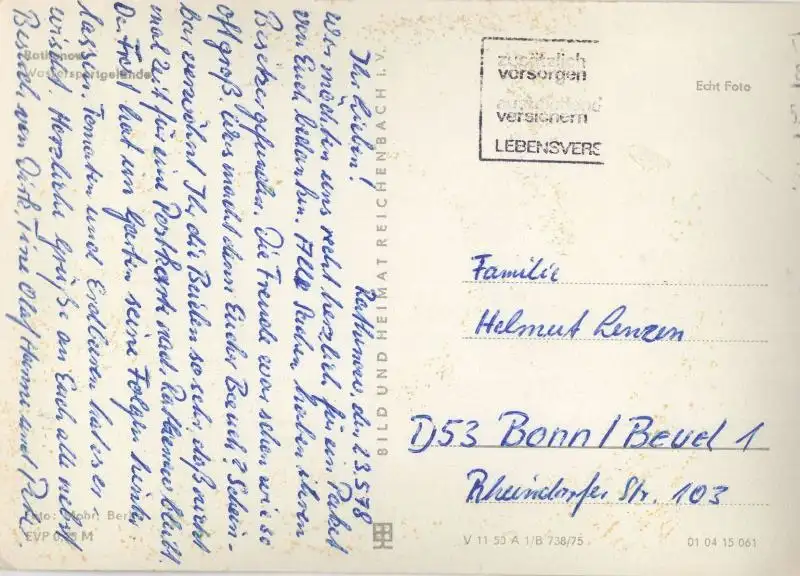 Rathenow
Wassersportgelände
Rathenow, den 23.5.78
Ihr Lieben!
Wir möchten uns recht herzlich für ein Paket
von Euch bedanken. Alle Sachen haben ihren
Besitzer gefunden. Die Freude war schon wie so
oft groß. Was macht denn Euer Besuch? Schein-
bar verwöhnt Ihr die Beiden so sehr, daß nicht
mal Zeit für eine Postkarte nach Rathenow bleibt.
Der Frost hat im Garten seine Folgen hinter-
lassen. Tomaten und Erdbeeren hat es er-
wischt. Herzliche Grüße an Euch alle nebst
Besuch von Dirk, Olaf Hanna und
Foto: Mohr, Berlin
EVP 0,25 M
BILD UND HEIMAT REICHENBACH I.V.
zusätzlich
vorsorgen
versichern
LEBENSVERS
Echt Foto
Familie
Helmut Lenzen
D53 Bonn/Beuel 1
Rheindorfer Str. 103
V 11 50 A 1/B 738/75
01 04 15 061